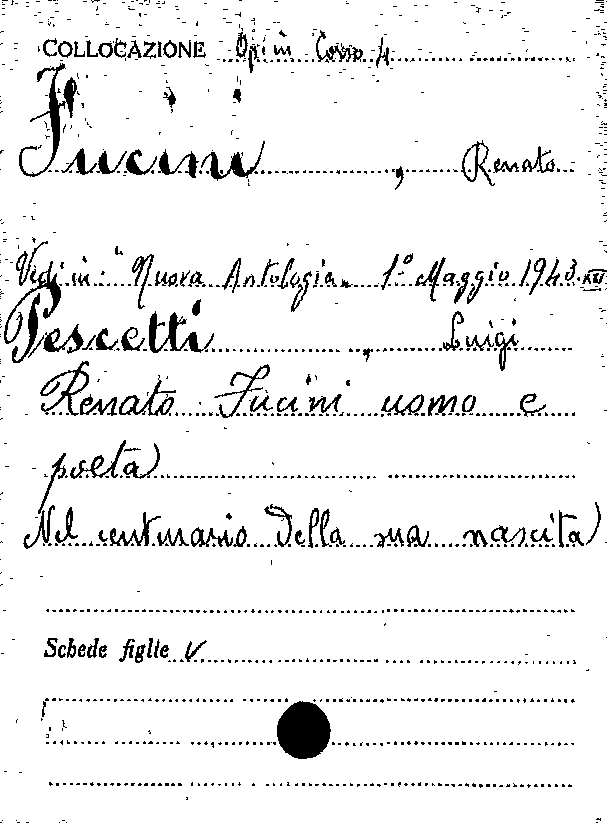 COLLOCAZIONE Op. in Corso 4
Fucini, Renato
Vedi in: "Nuova Antologia„ 1° Maggio 1943. XXI
Pescetti, Luigi
Renato Fucini uomo e
poeta
Nel centenario della sua nascita
Schede figlie V